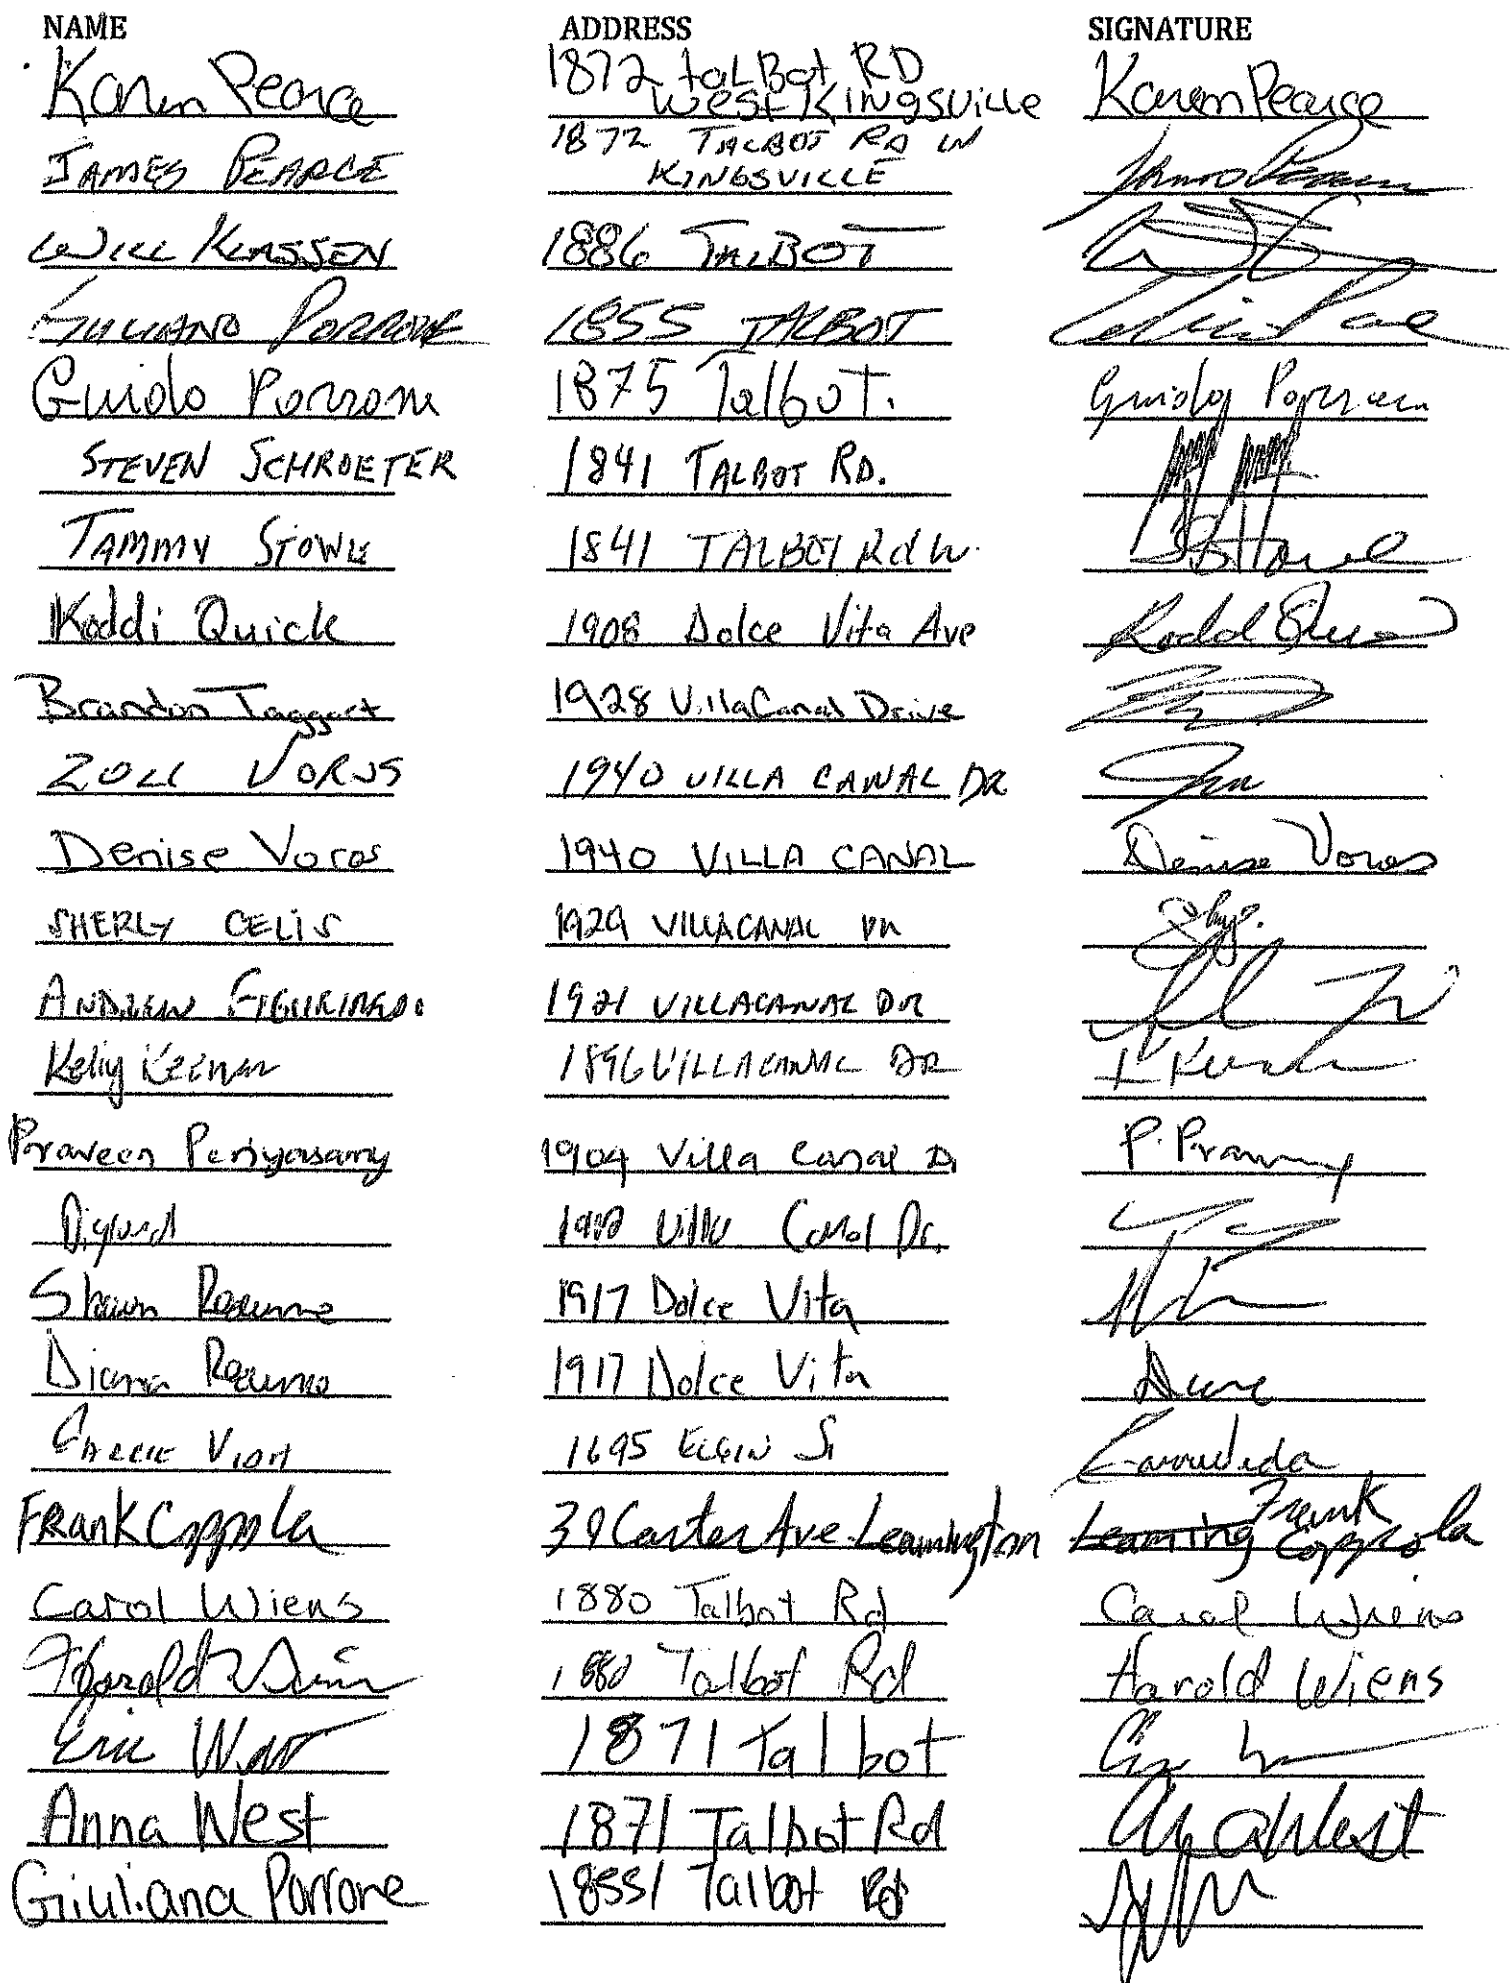 NAME ADDRESS SIGNATURE
Karen Pearce 1872 talBot RD West Kingsville Karen Pearce
JAMES PEARCE 1872 TALBOT RD W KINGSVILLE
WILL KLASSEN 1886 TALBOT
GIULIANO PORRONE 1855 TALBOT
Guido Porrone 1875 Talbot. Guido Porrone
STEVEN SCHROETER 1841 TALBOT RD.
TAMMY STOWE 1841 TALBOT Rd W.
Koddi Quick 1908 Dolce Vita Ave
Brandon Taggart 1928 Villa Canal Drive
ZOLI VOROS 1940 VILLA CANAL DR
Denise Voros 1940 VILLA CANAL Denise Voros
SHERLY CELIS 1929 VILLACANAL DR
ANDREW FIGUEIREDO 1921 VILLACANAL DR
Kelly Keenan 1896 VILLACANAL DR
Praveen Periyasamy 1904 Villa Canal D
Dr.
Shawn 1917 Dolce Vita
Diana 1917 Dolce Vita
VIDA 1695 ELGIN St
FRank Coppola 39 Carter Ave Leamington Leaming Frank Coppola
Carol Wiens 1880 Talbot Rd Carol Wiens
Harold Wiens 1880 Talbot Rd Harold Wiens
Eric West 1871 Talbot
Anna West 1871 Talbot Rd Anna West
Giuliana Porrone 1855 Talbot Rd